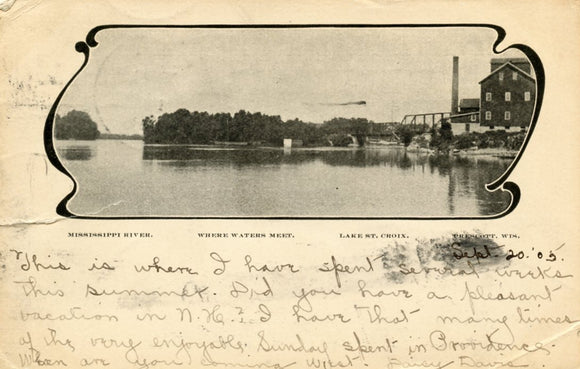 MISSISSIPPI RIVER. WHERE WATERS MEET. LAKE ST. CROIX. PRESCOTT, WIS.
Sept. 20 '05.
This is where I have spent several weeks
this summer. Did you have a pleasant
vacation in N.H.? I have that many times
of the very enjoyable Sunday spent in Providence
When are you coming West. Daisy Davis.